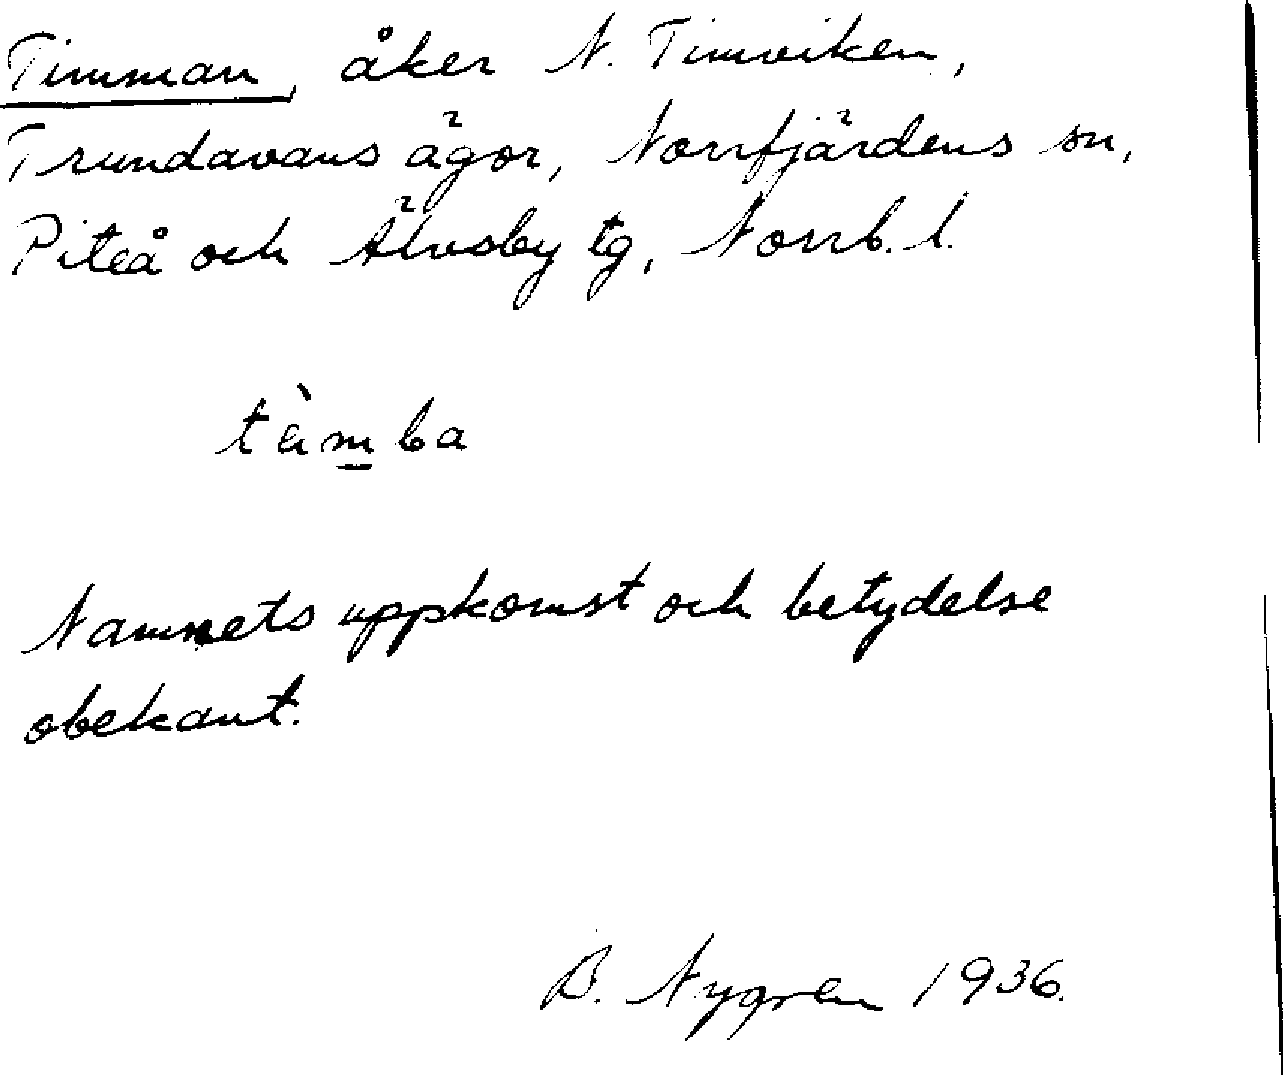 Timman, åker N. Timviken,
Trundavans ägor, Norrfjärdens sn,
Piteå och Älvsby tg, Norrb. l.
tàmba
Namnets uppkomst och betydelse
obekant.
B. Nygren 1936.